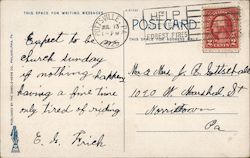 THIS SPACE FOR WRITING MESSAGES
POSTCARD
JUL 13
HELP
FOREST FIRES
2 CENTS 2
Expect to be
church sunday
if nothing happens
having a fine time
only tired of riding
E. G. Frich
Mr & Mrs J. B. Gottschall
1020 W. Marshall St
Norristown
Pa